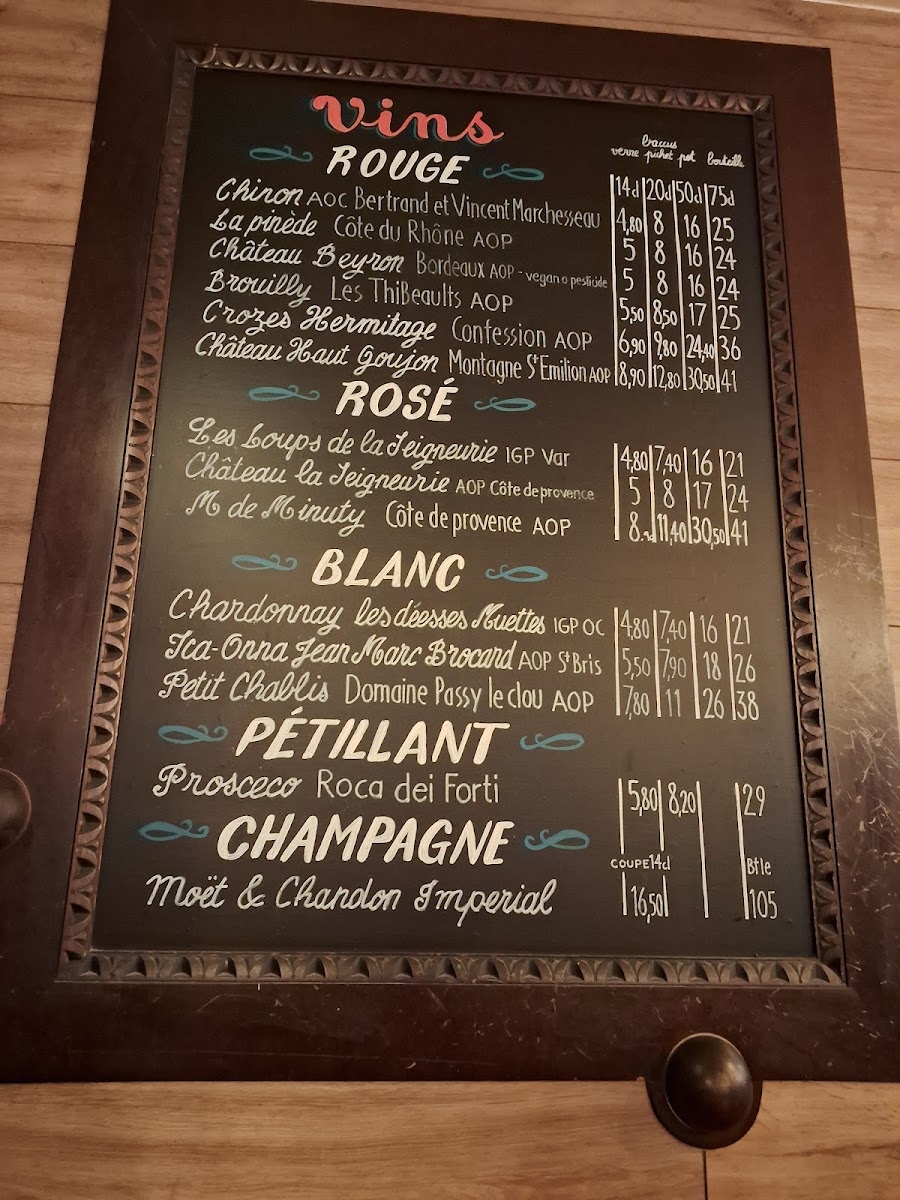 Vins
ROUGE
baccus
verre pichet pot bouteille
14cl 20cl 50cl 75cl
Chinon AOC Bertrand et Vincent Marchesseau 4,80 8 16 25
La pinède Côte du Rhône AOP 5 8 16 24
Château Beyron Bordeaux AOP - vegan o pesticide 5 8 16 24
Brouilly Les ThiBeaults AOP 5,50 8,50 17 25
Crozes Hermitage Confession AOP 6,90 9,80 24,40 36
Château Haut Goujon Montagne St Emilion AOP 8,90 12,80 30,50 41
ROSÉ
Les Loups de la Seigneurie IGP Var 4,80 7,40 16 21
Château la Seigneurie AOP Côte de provence 5 8 17 24
M de Minuty Côte de provence AOP 8 11,40 30,50 41
BLANC
Chardonnay les déesses Muettes IGP OC 4,80 7,40 16 21
Ica-Onna Jean Marc Brocard AOP St Bris 5,50 7,90 18 26
Petit Chablis Domaine Passy le clou AOP 7,80 11 26 38
PÉTILLANT
Prosceco Roca dei Forti 5,80 8,20 29
CHAMPAGNE
COUPE 14cl Btle
Moët & Chandon Imperial 16,50 105